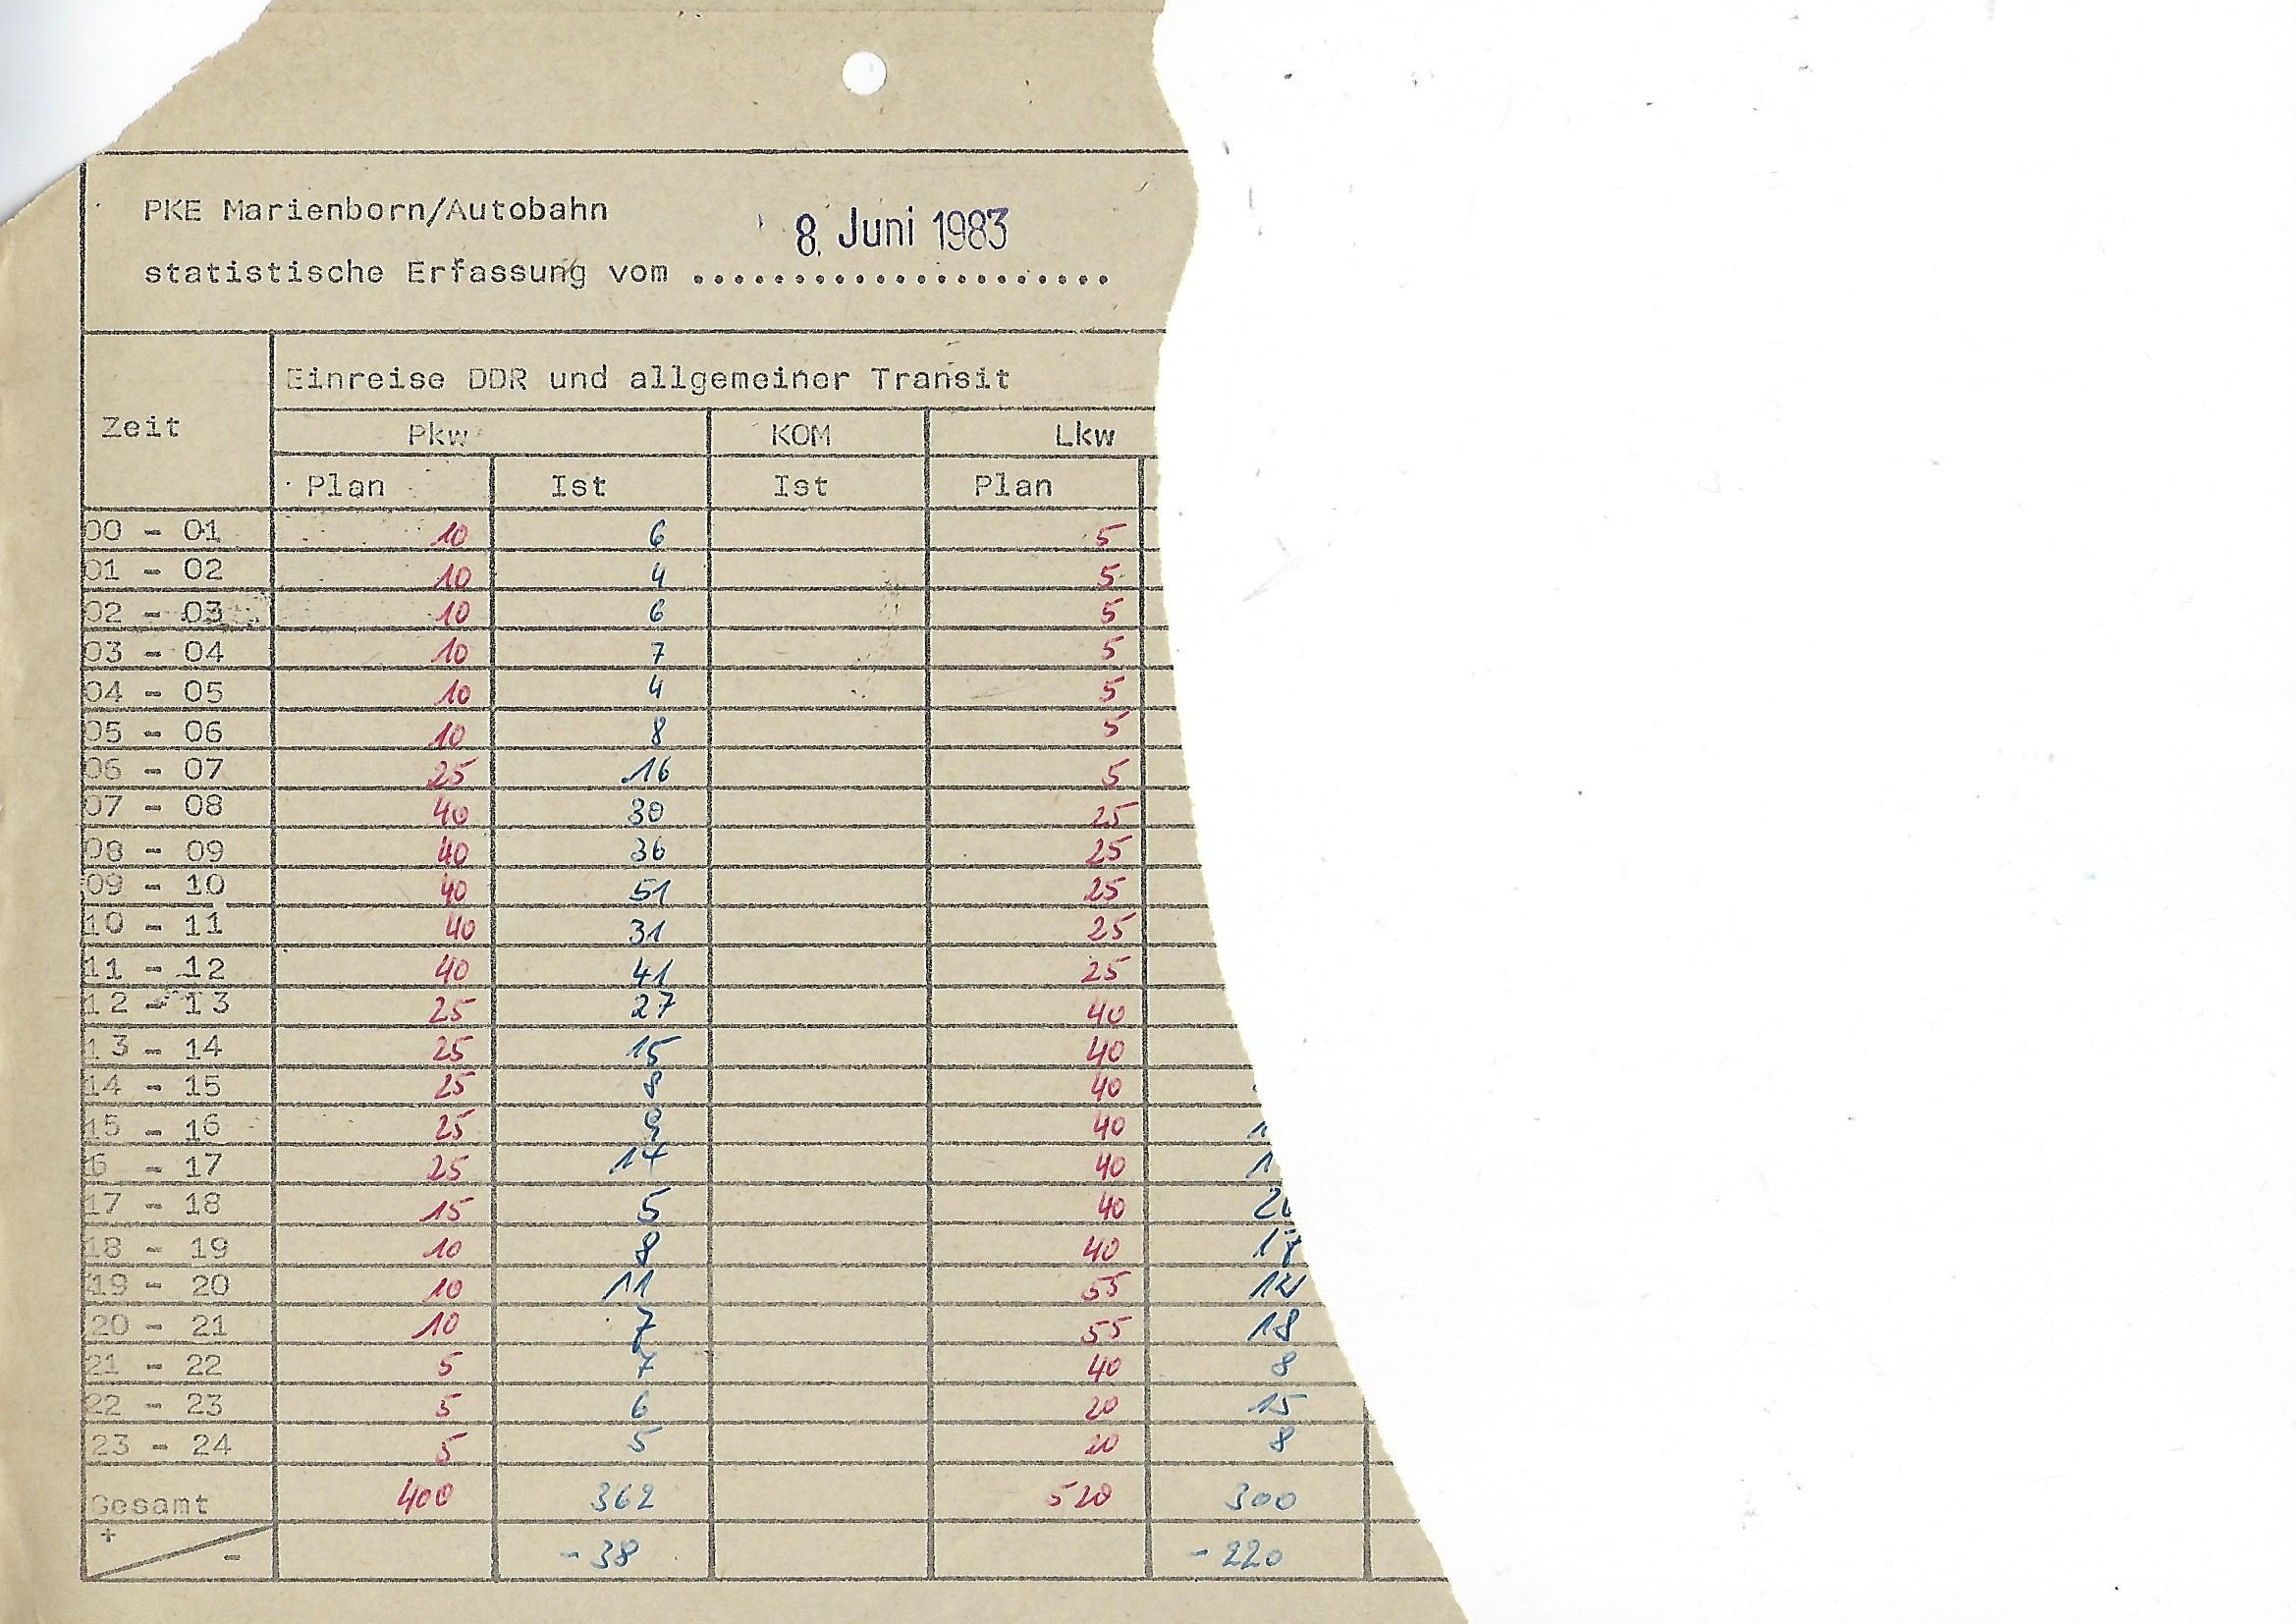 PKE Marienborn/Autobahn
8. Juni 1983
statistische Erfassung vom .....................
Zeit
Einreise DDR und allgemeiner Transit
Pkw KOM Lkw
Plan Ist Ist Plan
00 - 01 10 6 5
01 - 02 10 4 5
02 - 03 10 6 5
03 - 04 10 7 5
04 - 05 10 4 5
05 - 06 10 8 5
06 - 07 25 16 5
07 - 08 40 30 25
08 - 09 40 36 25
09 - 10 40 51 25
10 - 11 40 31 25
11 - 12 40 41 25
12 - 13 25 27 40
13 - 14 25 15 40
14 - 15 25 8 40
15 - 16 25 9 40
6 - 17 25 14 40
17 - 18 15 5 40
18 - 19 10 8 40
19 - 20 10 11 55
20 - 21 10 7 55 18
21 - 22 5 7 40 8
22 - 23 5 6 20 15
23 - 24 5 5 20 8
Gesamt 400 362 520 300
+ - -38 -220